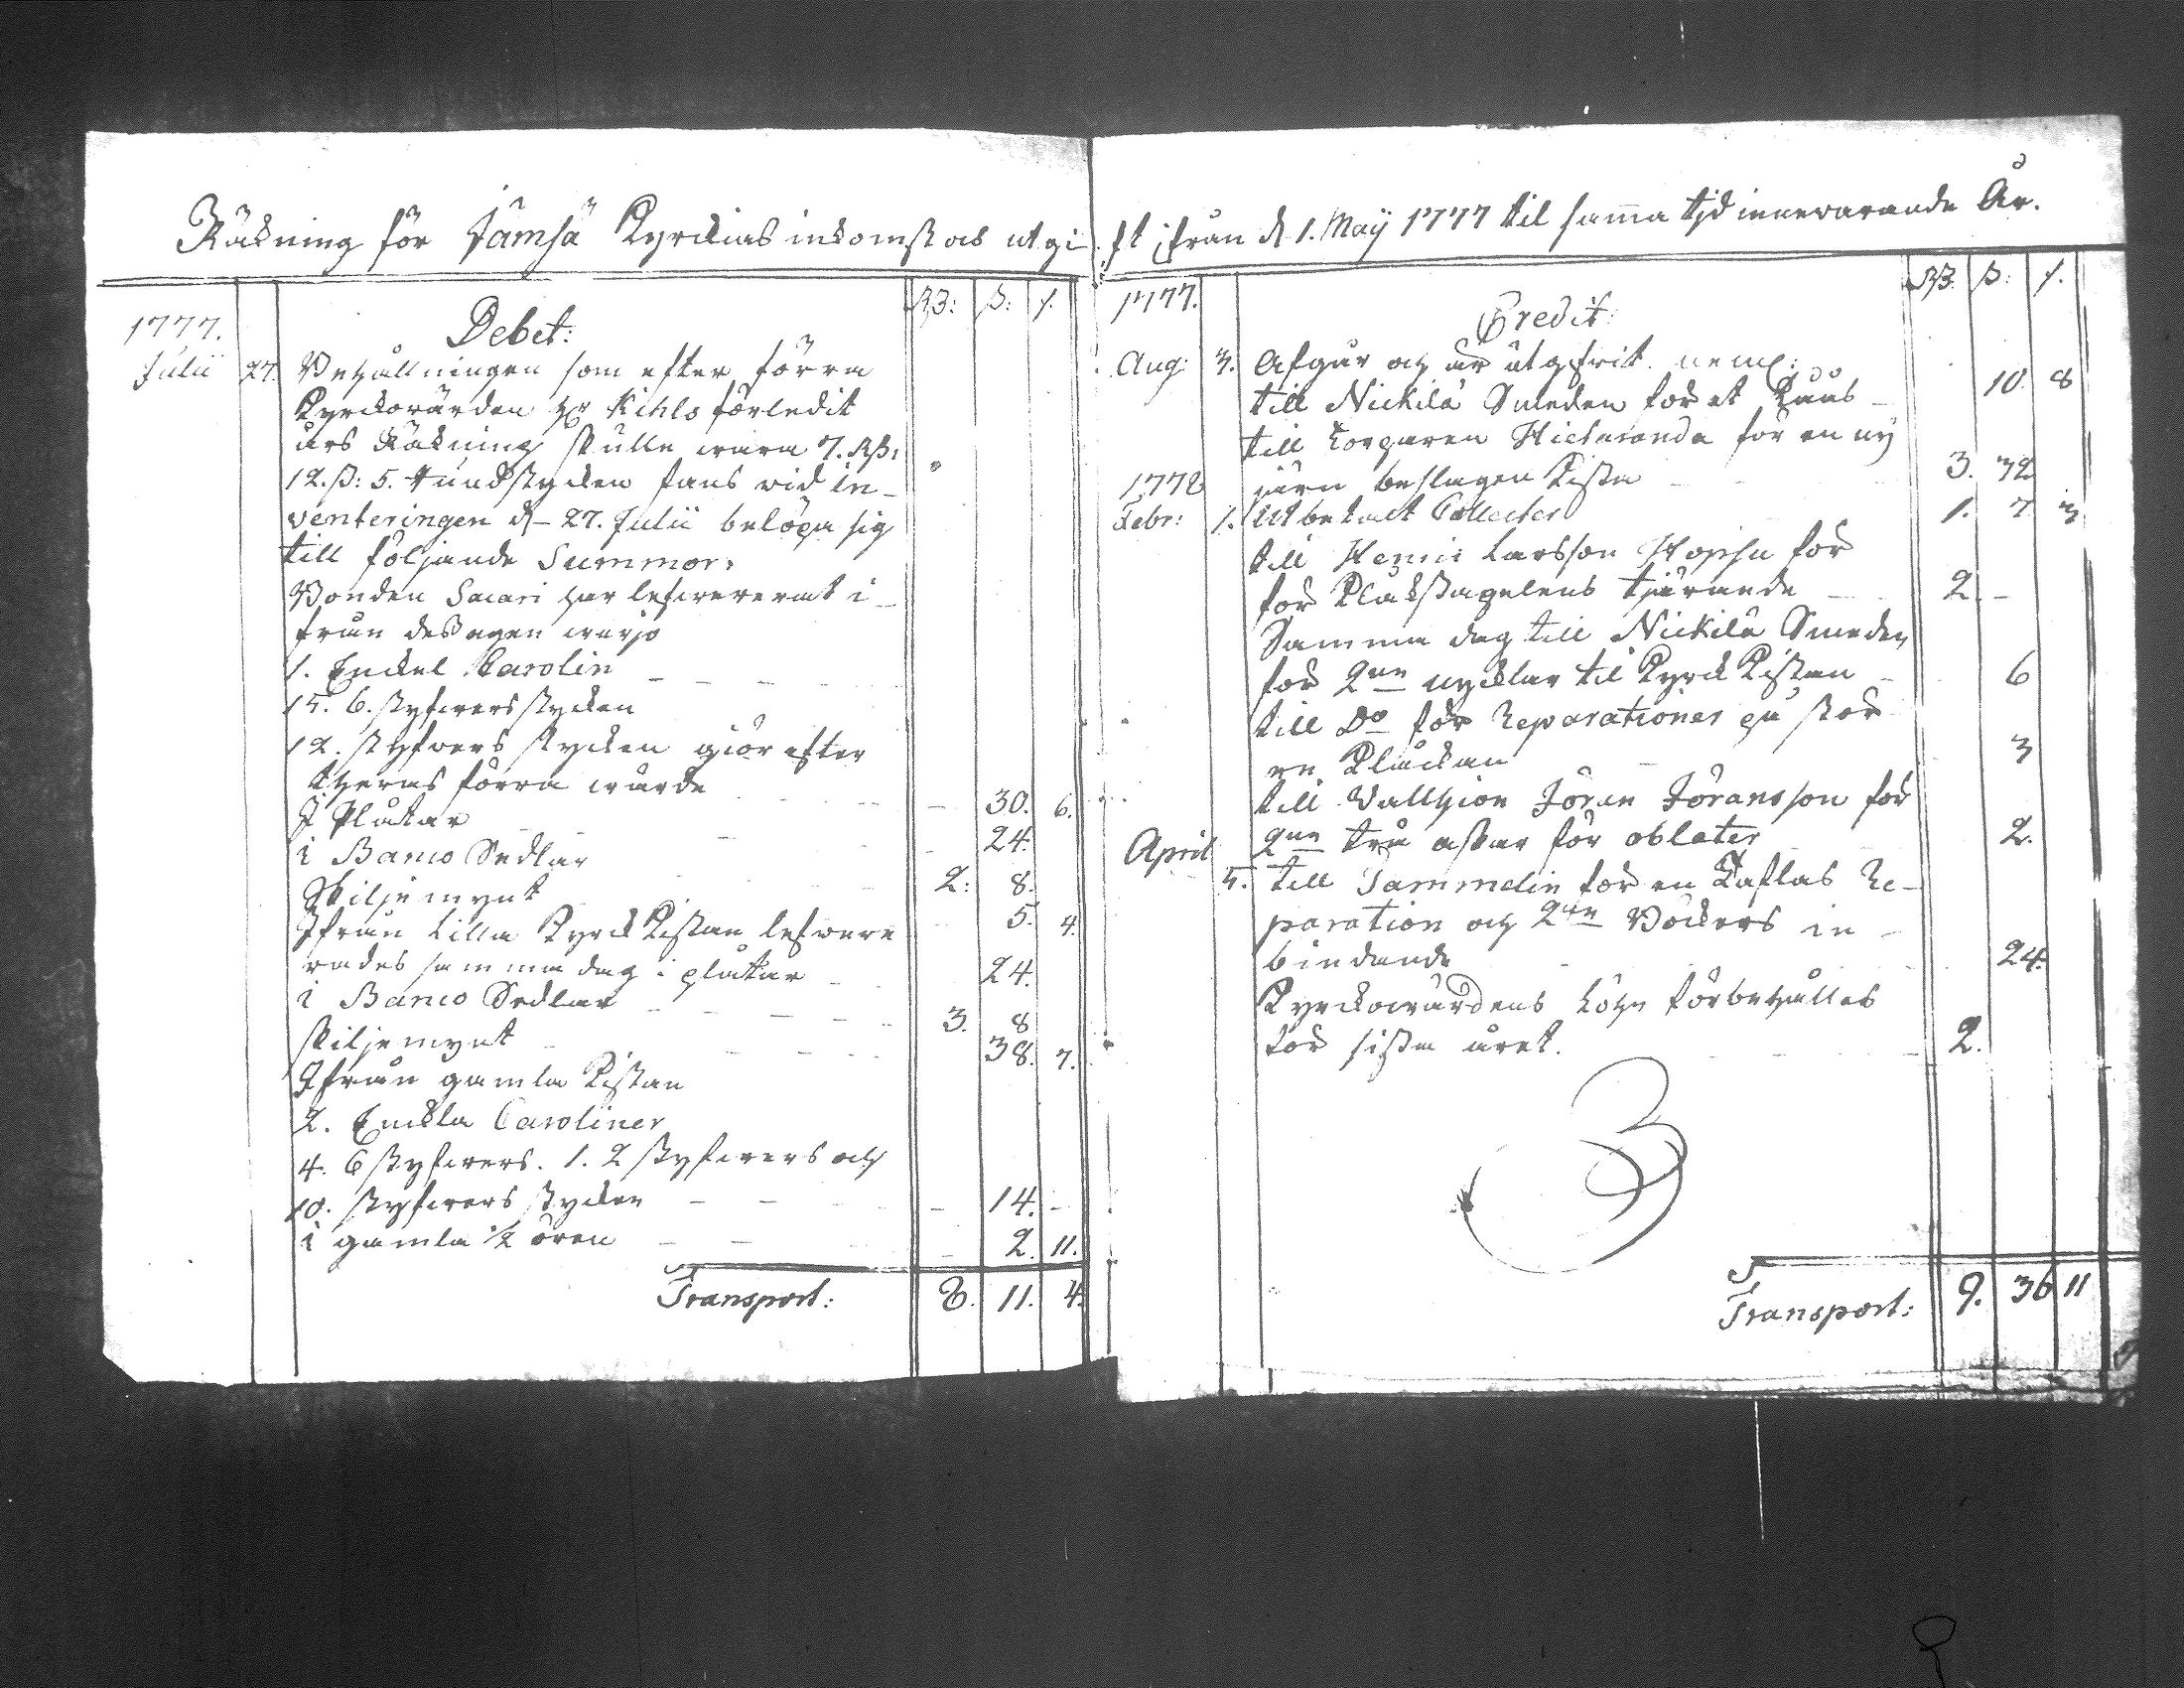 Räkning för Jämsä Kyrckias inkomst och utgift ifrån d. 1. Maÿ 1777 til samma tjd innevarande År.
Rß: ß: r.
Debet:
1777.
Julii 27. Behållningen som efter förra
Kyrckovärden Hr Kihls förledit
års Räkning skulle wara 7. Rß:
12. ß: 5. rundstycken fans vid in-
venteringen d. 27. Julii belöpa sig
till följande Summor:
Bonden Sacari har lefwererat i-
från des egen warjo
1. Enckel Carolin
15. 6. styfwersstycken
12. styfvers stycken giör efter
theras förra wärde 30. 6.
I Plåtar 24.
i Banco Sedlar 2: 8.
Skiljemynt 5. 4.
Ifrån Lilla KyrckKistan lefwere
rades samma dag i plåtar 24.
i Banco Sedlar 3. 8
skiljemynt 38. 7.
Ifrån gamla Kistan
2. Enckla Caroliner
4. 6 styfwers. 1. 2 styfwers och
10. styfwers stycken 14. -
i gamla 1/2 ören 2. 11.
Transport: 8. 11. 4.
Rß. ß: r.
1777. Credit:
Aug: 3. Afgår och är utgifvit neml:
till Nickilä Smeden för et Låås 10. 8
till för en nÿ
1778 järn beslagen Kista 3. 32
Febr: 1. Utbetalt Collecter 1. 7 3
till Henric Larsson för
för Klåckstapelens tjärande 2. -
Samma dag till Nickilä Smeden
för 2ne nycklar til KyrckKistan 6
till Do för Reparationer på stor
en Klåckan 3
till Jöran Jöransson för
April 2ne trä askar för oblater 2.
5. till Tammelin för en Taflas Re-
paration och 2ne Böckers in-
bindande 24.
Kyrckowärdens Löhn förbehålles
för sista året. 2.
Transport: 9. 36 11